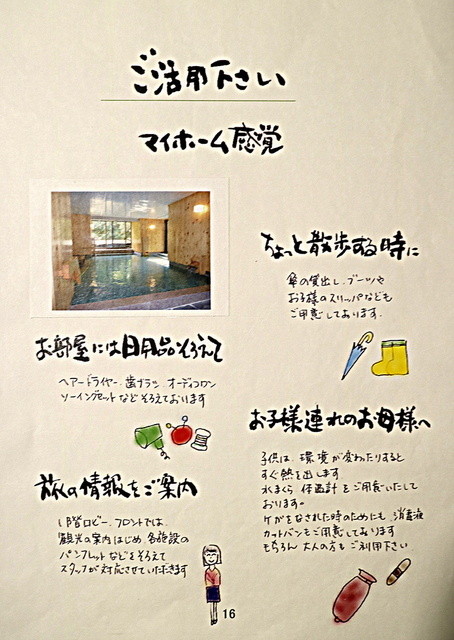 ご活用下さい
マイホーム感覚
お部屋には日用品そろえて
ヘアードライヤー、歯ブラシ オーディコロン
ソーイングセットなどそろえております
旅の情報をご案内
1階ロビー、フロントでは、
観光の案内はじめ 各施設の
パンフレットなどをそろえて
スタッフが対応させていただきます
ちょっと散歩する時に
傘の貸出し、ブーツや
お子様のスリッパなども
ご用意しております。
お子様連れのお母様へ
子供は、環境が変わたりすると
すぐ熱を出します
水まくら 体温計をご用意いたして
おります。
ケガをなされた時のためにも 消毒液
カットバンもご用意しております
もちろん 大人の方も ご利用下さい
16